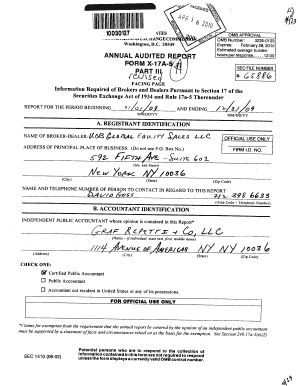 10030127
Washington, D.C. 20549
APR 16 2010
OMB APPROVAL
OMB Number: 3235-0123
Expires: February 28, 2010
Estimated average burden
hours per response...... 12.00
ANNUAL AUDITED REPORT
FORM X-17A-5
PART III
revised
SEC FILE NUMBER
FACING PAGE
Information Required of Brokers and Dealers Pursuant to Section 17 of the
Securities Exchange Act of 1934 and Rule 17a-5 Thereunder
REPORT FOR THE PERIOD BEGINNING 01/01/09 AND ENDING 12/31/09
MM/DD/YY MM/DD/YY
A. REGISTRANT IDENTIFICATION
NAME OF BROKER-DEALER: Equity Sales LLC
OFFICIAL USE ONLY
ADDRESS OF PRINCIPAL PLACE OF BUSINESS: (Do not use P.O. Box No.)
FIRM I.D. NO.
592 Fifth Ave - Suite 602
(No. and Street)
New York NY 10036
(City) (State) (Zip Code)
NAME AND TELEPHONE NUMBER OF PERSON TO CONTACT IN REGARD TO THIS REPORT
David 212 398 6633
(Area Code - Telephone Number)
B. ACCOUNTANT IDENTIFICATION
INDEPENDENT PUBLIC ACCOUNTANT whose opinion is contained in this Report*
Graf Repetti & Co, LLC
(Name - if individual, state last, first, middle name)
1114 Avenue of Americas NY NY 10036
(Address) (City) (State) (Zip Code)
CHECK ONE:
Certified Public Accountant
Public Accountant
Accountant not resident in United States or any of its possessions.
FOR OFFICIAL USE ONLY
*Claims for exemption from the requirement that the annual report be covered by the opinion of an independent public accountant
must be supported by a statement of facts and circumstances relied on as the basis for the exemption. See Section 240.17a-5(e)(2)
Potential persons who are to respond to the collection of
information contained in this form are not required to respond
unless the form displays a currently valid OMB control number.
SEC 1410 (06-02)